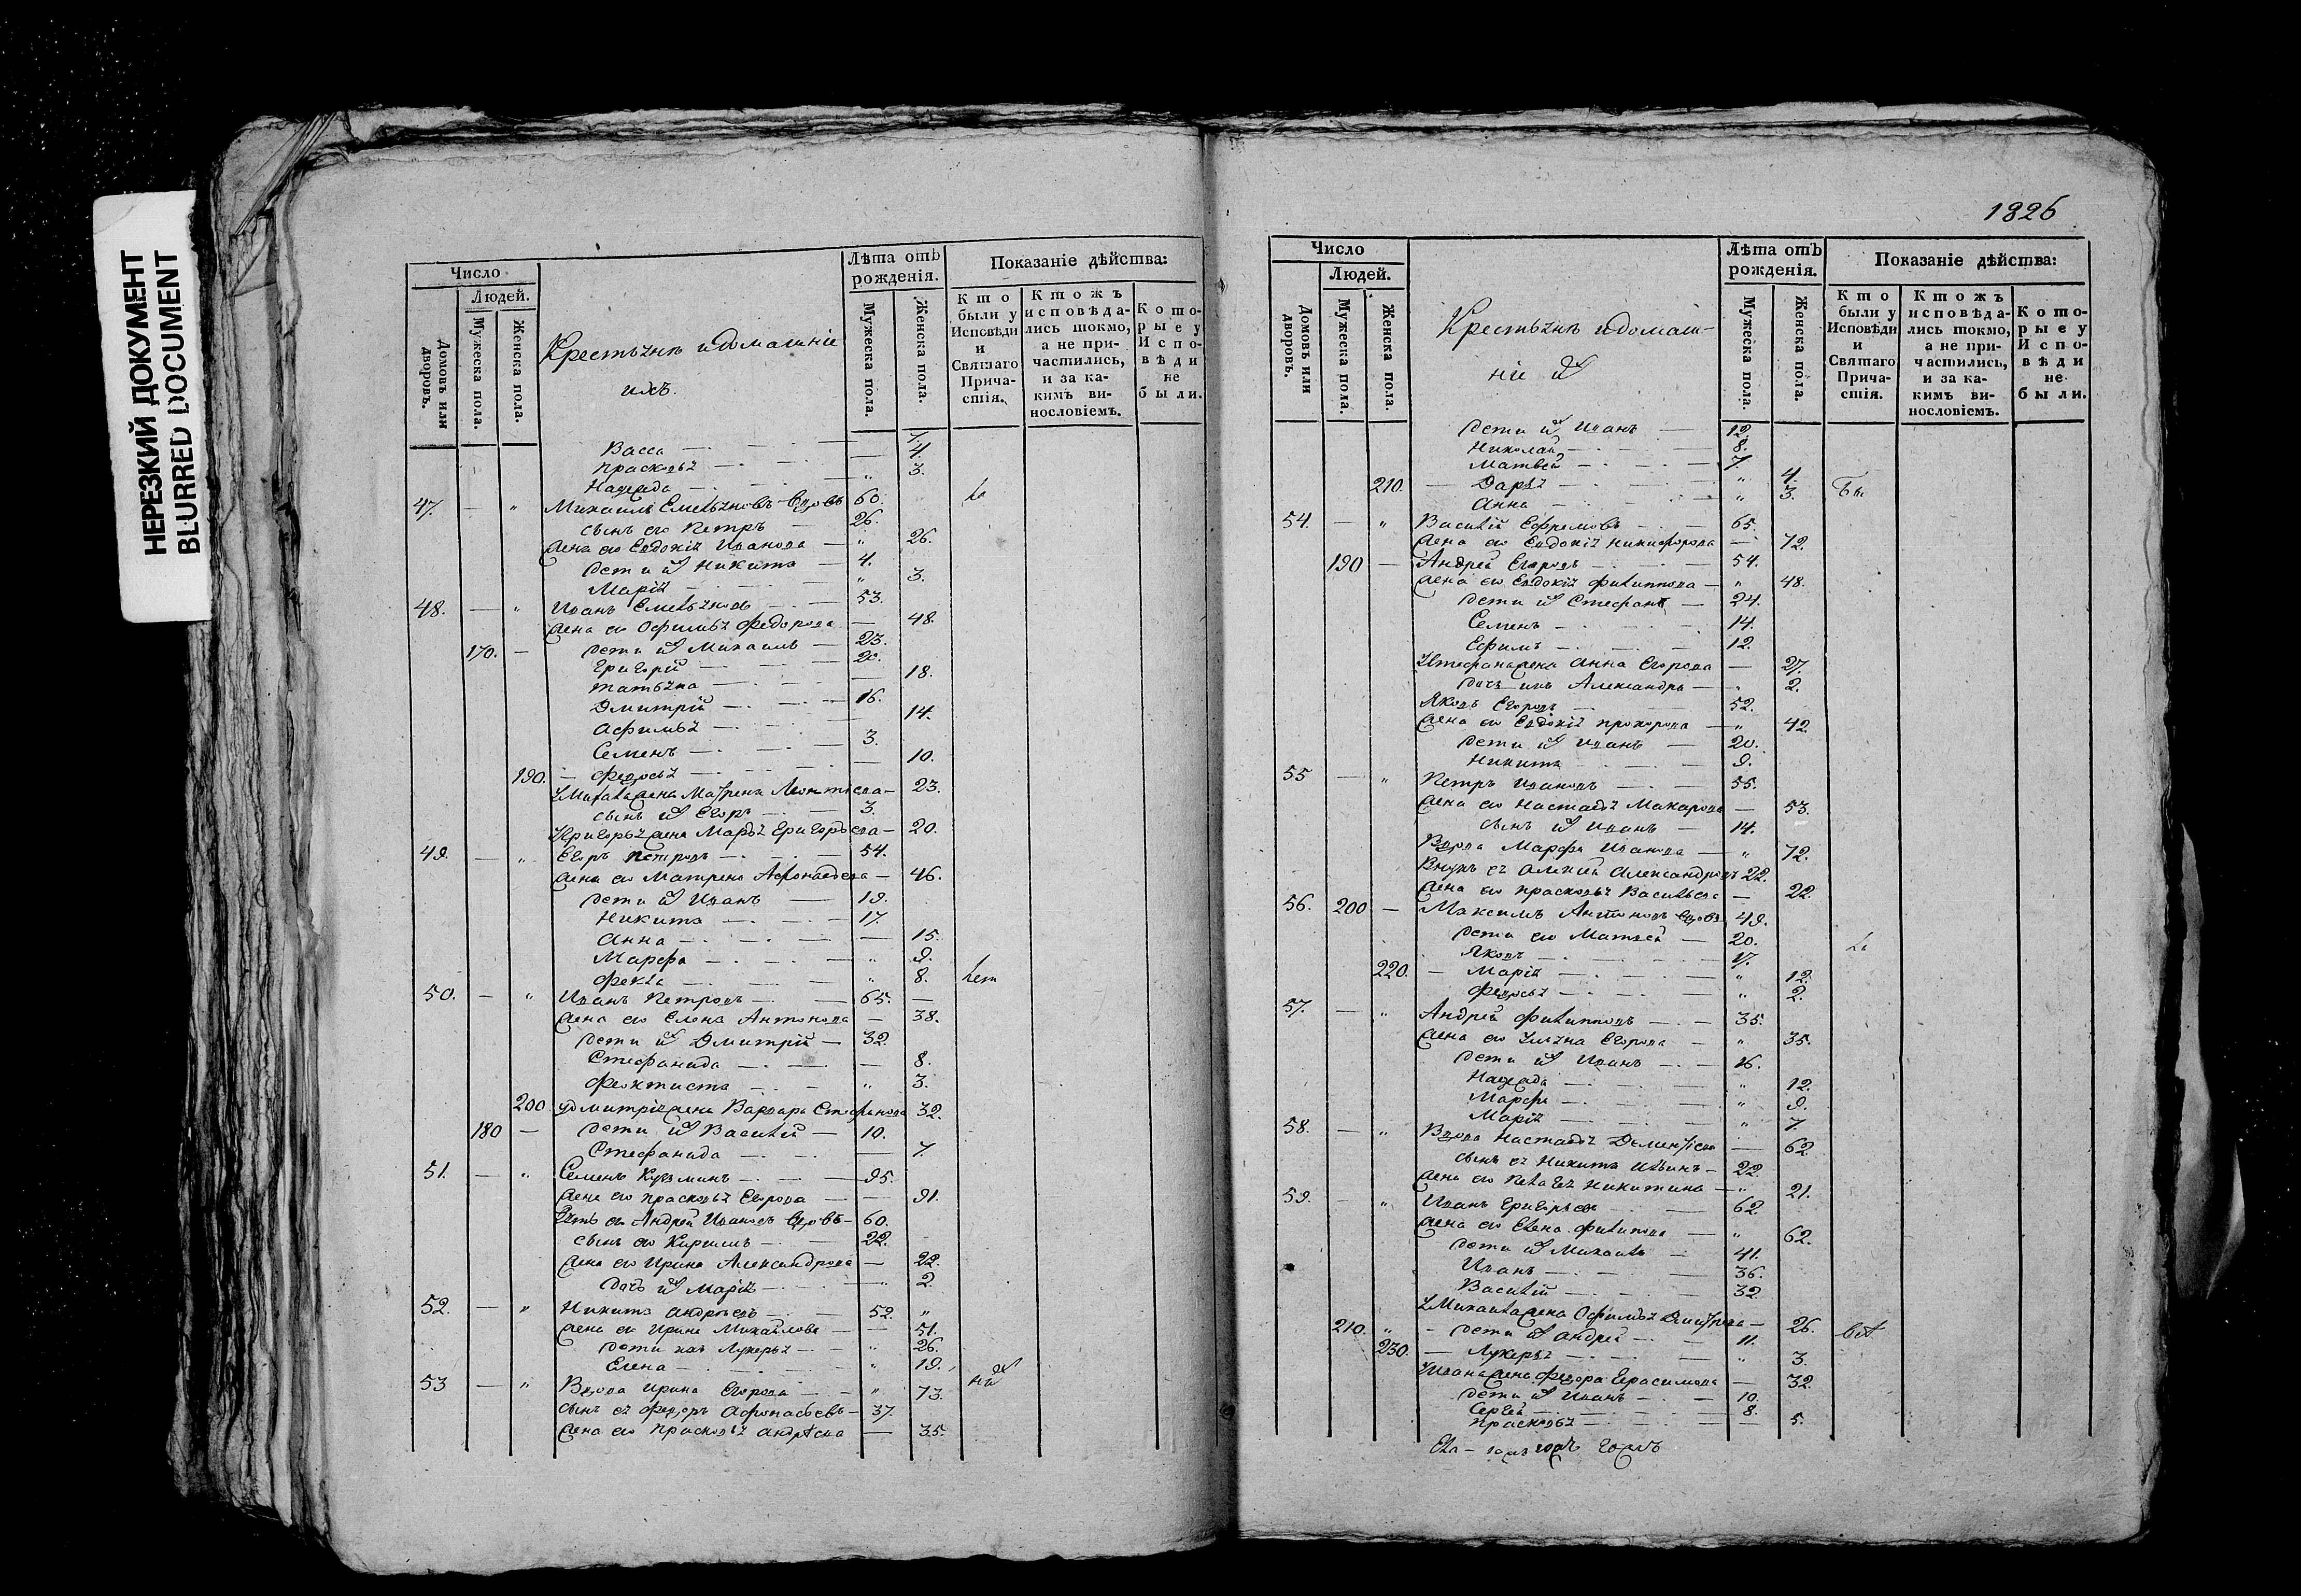 НЕРЕЗКИЙ ДОКУМЕНТ
BLURRED DOCUMENT
Число
Людей.
Домовъ или дворовъ.
Мужеска пола.
Женска пола.
Крестьяне и домашніе
ихъ.
Лѣта отъ рожденія.
Мужеска пола.
Женска пола.
Показаніе дѣйства:
Кто были у Исповѣди и Святаго Причастія.
Ктожъ исповѣдались токмо, а не причастились, и за какимъ винословіемъ.
Которые у Исповѣди не были.
Васса 7.
Прасковья 4.
Надежда „ 3.
47. — „ Михаилъ Емельяновъ вдовъ 60.
сынъ его Петръ 26.
жена его Евдокія Иванова „ 26.
дети их Никита 4.
Марія „ 3.
48. — „ Иванъ Емельяновъ 53.
жена его Офимья Федорова — 48.
170. — дети их Михаилъ 23.
Григорій 20.
Татьяна — 18.
Дмитрій 16.
Афимья — 14.
Семенъ 3.
190. — Федосья — 10.
У Михаила жена Матрена Леонтіева — 23.
сынъ их Егоръ 3.
У Григорья жена Марья Григорьева — 20.
49. — „ Егоръ Петровъ 54.
жена его Матрена Афонасьева — 46.
дети их Иванъ 19.
Никита 17.
Анна — 15.
Марфа „ 9.
Фекла „ 8.
50. — „ Иванъ Петровъ 65. —
жена его Елена Антонова — 38.
дети их Дмитрій 32.
Стефанида — 8.
Феоктиста „ 3.
200 У Дмитрія жена Варвара Стефанова 32.
180 — дети их Василій 10.
Стефанида — 7.
51. — „ Семенъ Кузминъ 95.
жена его Прасковья Егорова — 91.
Зять его Андрей Ивановъ вдовъ 60.
сынъ его Кирилъ 22.
жена его Ирина Александрова — 22.
дочь их Марія — 2.
52. — „ Никита Андреевъ 52. „
жена его Ирина Михайлова — 51.
дети ихъ Лукерья „ 26.
Елена „ 19.
53 — „ Вдова Ирина Егорова „ 73
сынъ ея Федоръ Афонасьевъ 37.
жена его Прасковья Андреева — 35.
1826
Число
Людей.
Домовъ или дворовъ.
Мужеска пола.
Женска пола.
Крестьяне и домаш-
ніе их
Лѣта отъ рожденія.
Мужеска пола.
Женска пола.
Показаніе дѣйства:
Кто были у Исповѣди и Святаго Причастія.
Ктожъ исповѣдались токмо, а не причастились, и за какимъ винословіемъ.
Которые у Исповѣди не были.
дети их Иванъ 12.
Николай 8.
Матвей 7.
210. — Дарья „ 4.
Анна „ 3.
54. — „ Василій Ефремовъ 65.
жена его Евдокія Никифорова — 72.
190 — Андрей Егоровъ 54.
жена его Евдокія Филиппова „ 48.
дети их Стефанъ 24.
Семенъ 14.
Ефимъ 12.
У Стефана жена Анна Егорова — 27
дочь ихъ Александра „ 2.
Яковъ Егоровъ 52.
жена его Евдокія Прохорова „ 42.
дети их Иванъ 20.
Никита 9.
55 — „ Петръ Ивановъ 55.
жена его Настасья Макарова — 53.
сынъ их Иванъ 14.
Вдова Марфа Иванова „ 72.
Внукъ ея Алексей Александровъ 22.
жена его Прасковья Васильева — 22.
56. 200 — Максимъ Антоновъ вдовъ 49.
дети его Матвей 20.
Яковъ 17.
220. — Марія „ 12.
Федосья „ 2.
57. — „ Андрей Филипповъ 35.
жена его Ульяна Егорова „ 35.
дети их Иванъ 16.
Надежда „ 12.
Марфа „ 9.
Марія „ 7.
58. — „ Вдова Настасья Дементіева — 62.
сынъ ея Никита Ильинъ 22
жена его Пелагея Никитина „ 21.
59. — „ Иванъ Григорьевъ 62.
жена его Елена Филипова „ 62.
дети их Михаилъ 41.
Иванъ 36.
Василій 32.
У Михаила жена Офимья Дмитрева — 26.
210. „ — дети их Андрей 11.
230. — Лукерья „ 3.
У Ивана жена Федора Герасимова — 32.
дети их Иванъ 10.
Сергей 8.
Прасковья — 5.